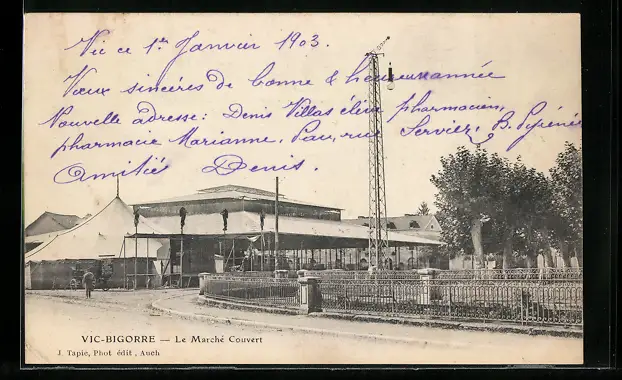 Vic ce 1er Janvier 1903.
Vœux sincères de bonne & heureuse année
Nouvelle adresse: Denis Villas élève pharmacien,
pharmacie Marianne, Pau, rue Serviez, B. Pyrénées
Amitié Denis.
VIC-BIGORRE — Le Marché Couvert
J. Tapie, Phot édit, Auch